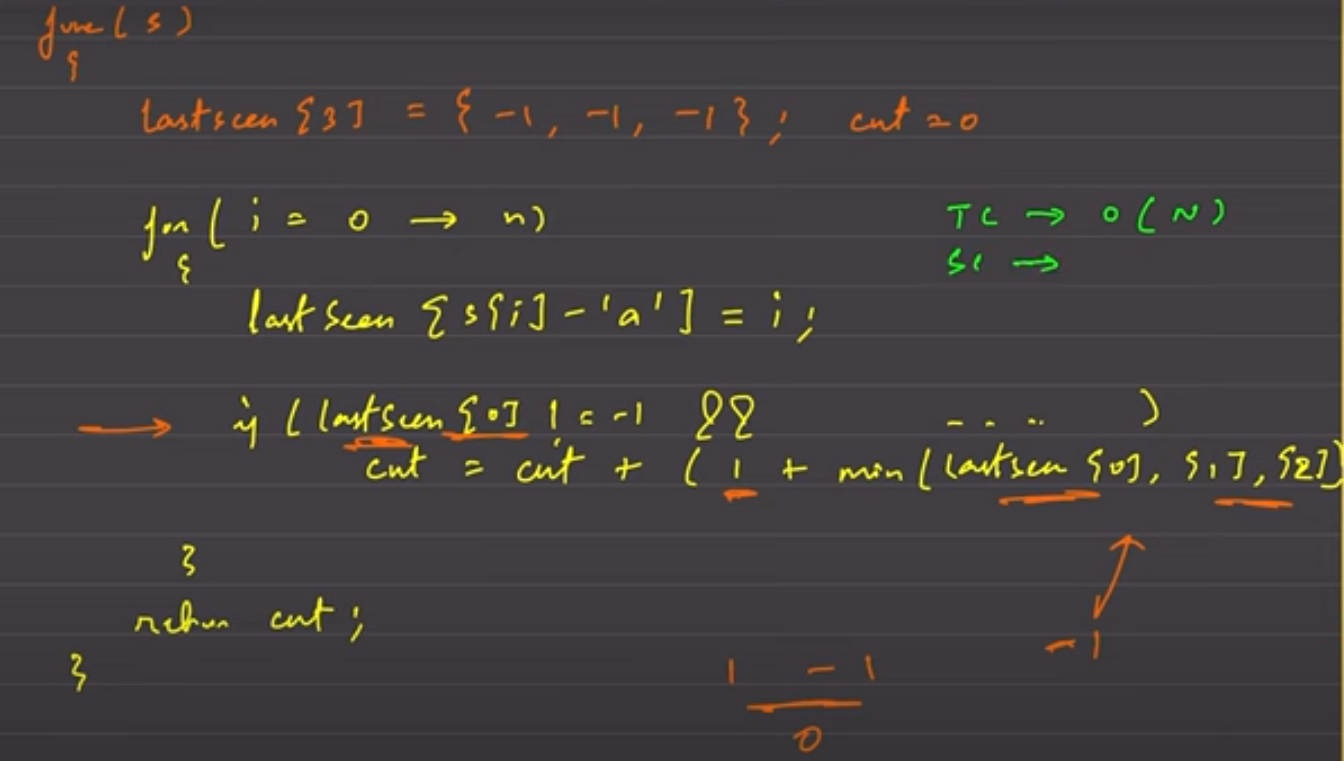 func(s)
{
lastseen[3] = {-1, -1, -1}; cnt = 0
for(i = 0 → n)
{
TC → O(N)
SC →
lastseen[s[i]-'a'] = i;
→ if(lastseen[0] != -1 && - - .. )
cnt = cnt + (1 + min(lastseen[0], [1], [2])
}
-1
return cnt;
}
1 -1
0